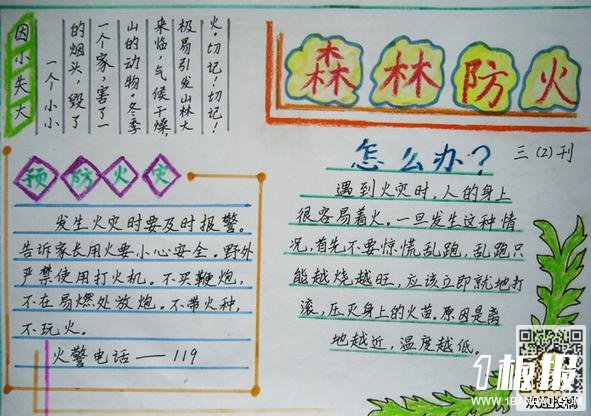 因小失大
一个小小
的烟头，毁了
一个家，害了一
山的动物。冬季
来临，气候干燥
极易引发山林大
火。切记！切记！
森林防火
三(2)刊
预防火灾
发生火灾时要及时报警。
告诉家长用火要小心安全。野外
严禁使用打火机。不买鞭炮，
不在易燃处放炮。不带火种，
不玩火。
火警电话——119
怎么办？
遇到火灾时，人的身上
很容易着火。一旦发生这种情
况，首先不要惊慌乱跑，乱跑只
能越烧越旺，应该立即就地打
滚，压灭身上的火苗。原因是离
地越近，温度越低。
1板报
WWW.1BANBAO.COM